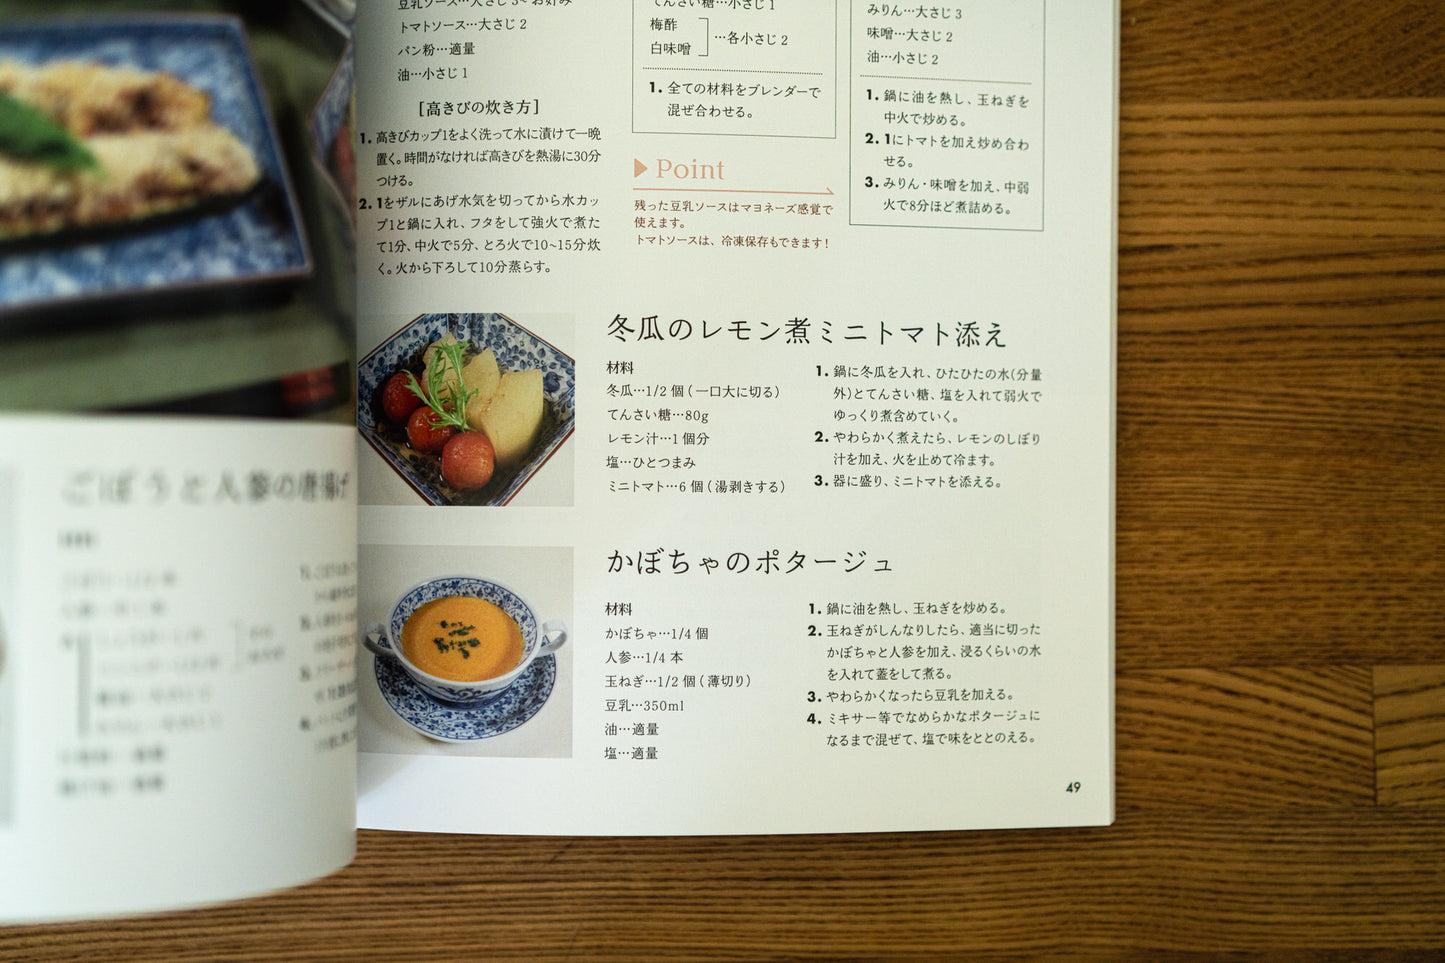 豆乳ソース…大さじ3~お好み
トマトソース…大さじ2
パン粉…適量
油…小さじ1
[高きびの炊き方]
1. 高きびカップ1をよく洗って水に漬けて一晩
置く。時間がなければ高きびを熱湯に30分
つける。
2. 1をザルにあげ水気を切ってから水カッ
プ1と鍋に入れ、フタをして強火で煮た
て1分、中火で5分、とろ火で10~15分炊
く。火から下ろして10分蒸らす。
てんさい糖…小さじ1
梅酢
白味噌
…各小さじ2
1. 全ての材料をブレンダーで
混ぜ合わせる。
Point
残った豆乳ソースはマヨネーズ感覚で
使えます。
トマトソースは、冷凍保存もできます!
みりん…大さじ3
味噌…大さじ2
油…小さじ2
1. 鍋に油を熱し、玉ねぎを
中火で炒める。
2. 1にトマトを加え炒め合わ
せる。
3. みりん・味噌を加え、中弱
火で8分ほど煮詰める。
冬瓜のレモン煮ミニトマト添え
材料
冬瓜…1/2個(一口大に切る)
てんさい糖…80g
レモン汁…1個分
塩…ひとつまみ
ミニトマト…6個(湯剥きする)
1. 鍋に冬瓜を入れ、ひたひたの水(分量
外)とてんさい糖、塩を入れて弱火で
ゆっくり煮含めていく。
2. やわらかく煮えたら、レモンのしぼり
汁を加え、火を止めて冷ます。
3. 器に盛り、ミニトマトを添える。
かぼちゃのポタージュ
材料
かぼちゃ…1/4個
人参…1/4本
玉ねぎ…1/2個(薄切り)
豆乳…350ml
油…適量
塩…適量
1. 鍋に油を熱し、玉ねぎを炒める。
2. 玉ねぎがしんなりしたら、適当に切った
かぼちゃと人参を加え、浸るくらいの水
を入れて蓋をして煮る。
3. やわらかくなったら豆乳を加える。
4. ミキサー等でなめらかなポタージュに
なるまで混ぜて、塩で味をととのえる。
49
ごぼうと人参の唐揚げ